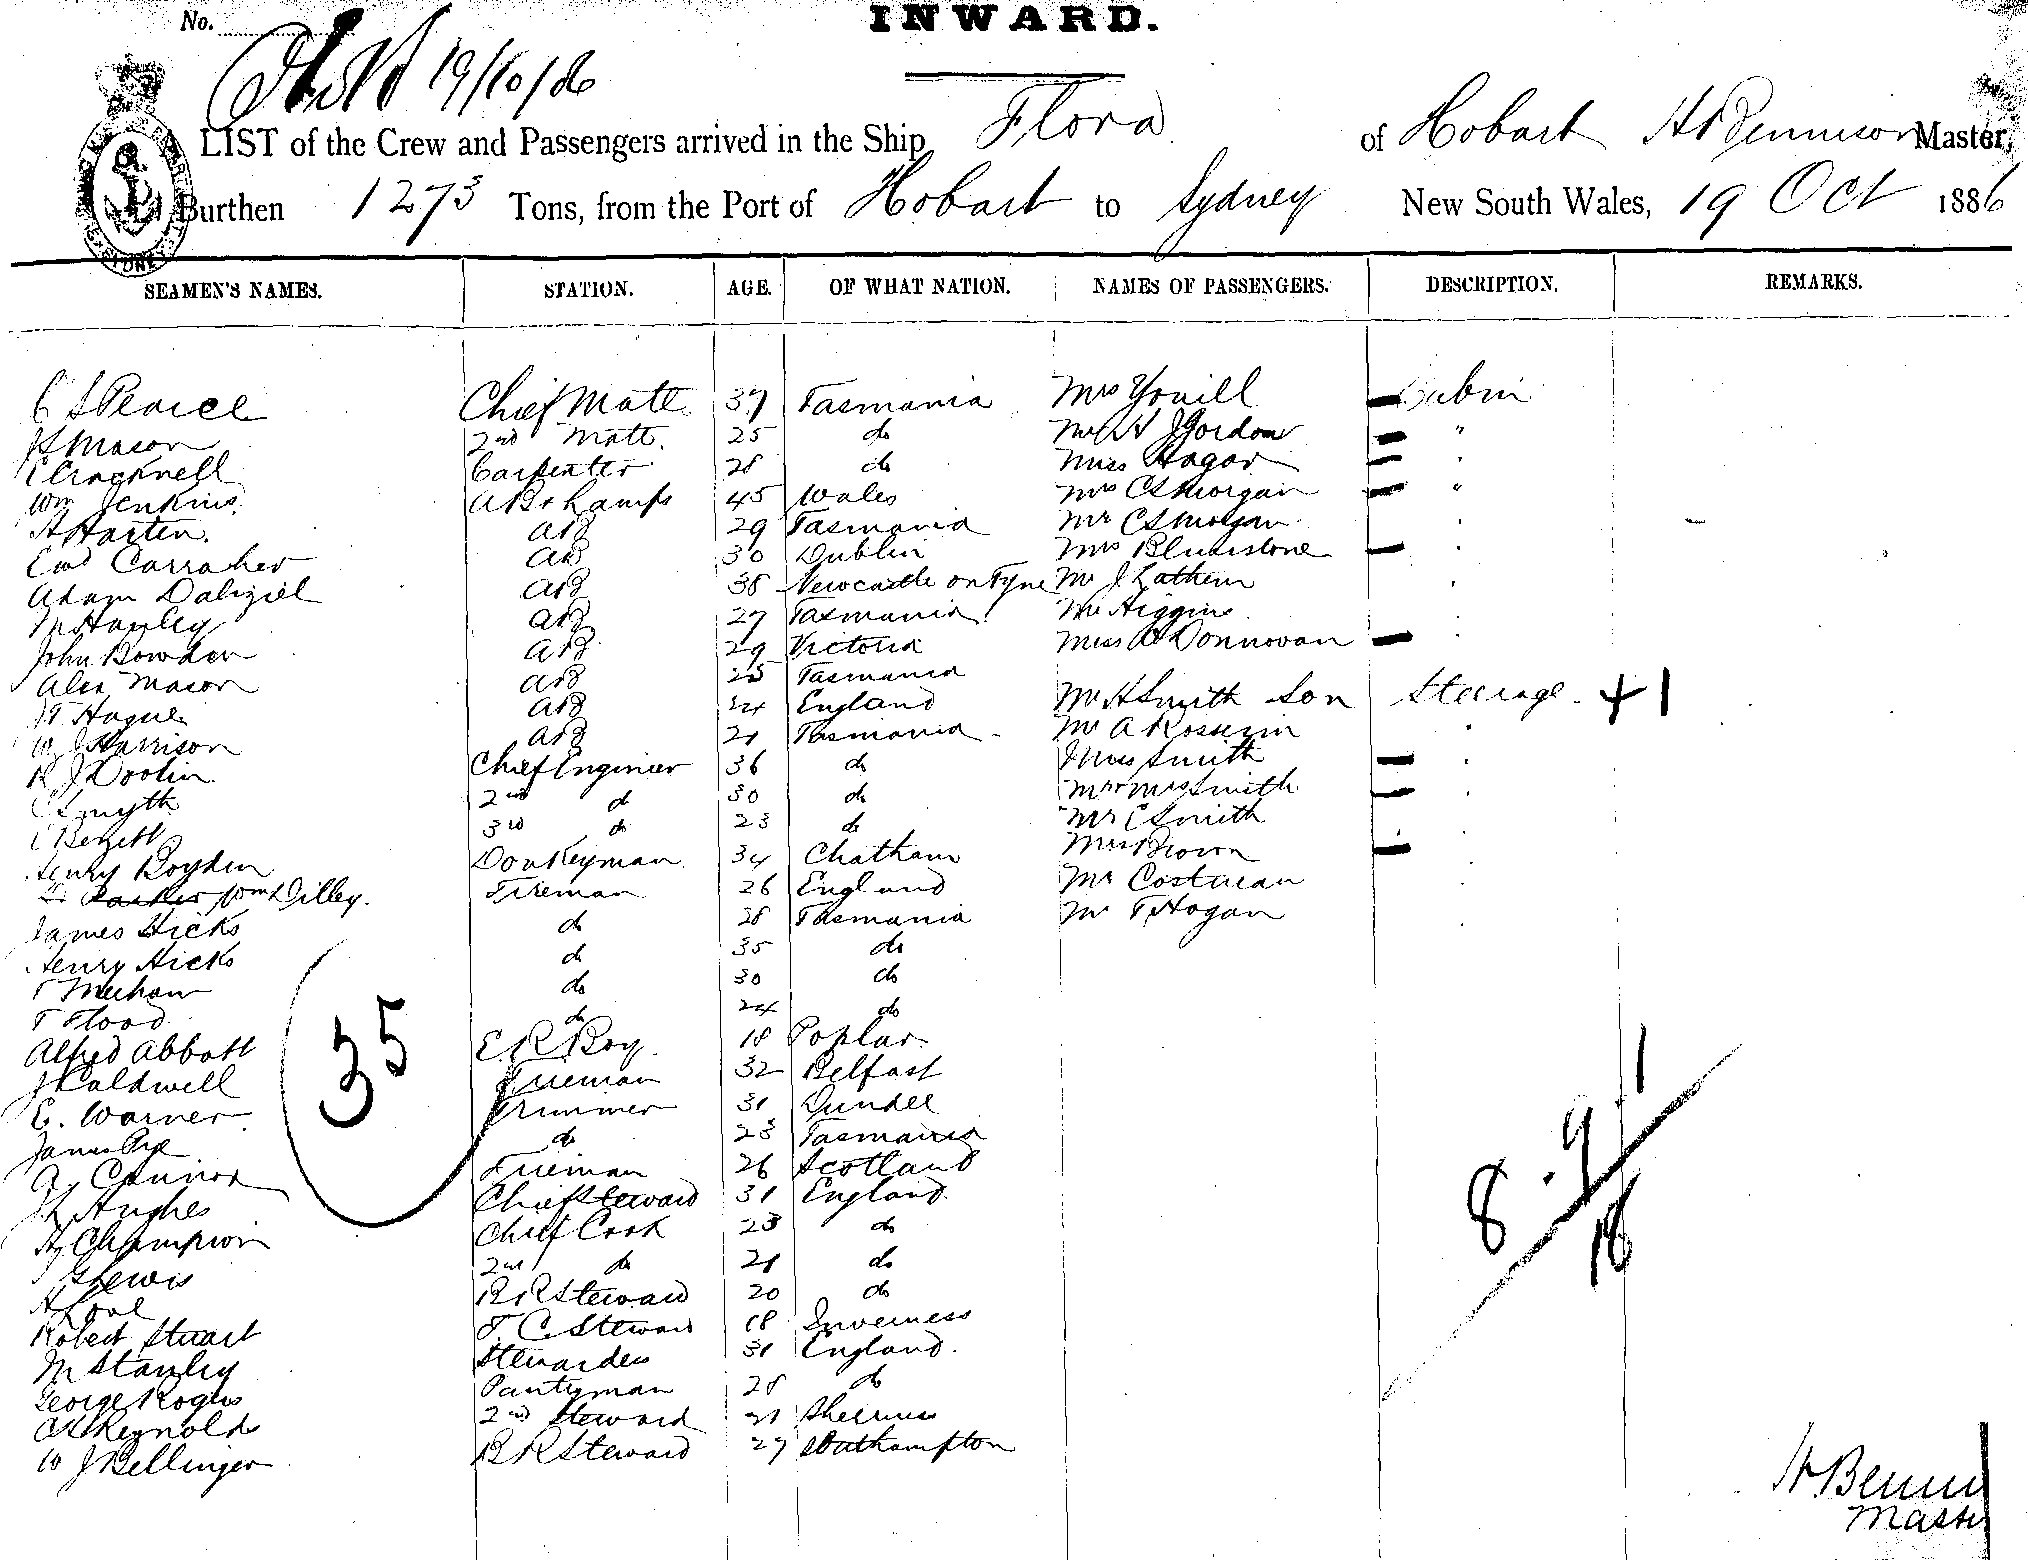 No.
INWARD.
19/10/86
LIST of the Crew and Passengers arrived in the Ship Flora of Hobart H Bennison Master,
Burthen 1273 Tons, from the Port of Hobart to Sydney New South Wales, 19 Oct 1886
SEAMEN'S NAMES. STATION. AGE. OF WHAT NATION. NAMES OF PASSENGERS. DESCRIPTION. REMARKS.
C S Pearce Chief Mate 37 Tasmania Mrs Youill Cabin
H Mason 2nd Mate. 25 do Mr H J Gordon "
C Cracknell Carpenter 28 do Miss Hagar "
Wm Jenkins AB & Lamps 45 Wales Mrs C S Morgan "
A Harten. AB 29 Tasmania Mr C S Morgan
Ewd Carraher AB 30 Dublin Mrs Blundstone
Adam Dalziel AB 38 Newcastle on Tyne Mr J Lathem
M Hanley AB 27 Tasmania Mr Higgins
John Bowden AB 29 Victoria Miss Donnovan
Alex Mason AB 25 Tasmania
H Hague AB 24 England Mr H Smith Son Steerage + 1
W J Harrison AB 21 Tasmania Mr A Rosserin
R J Doolin Chief Engineer 36 do Miss Smith
C Smyth 2nd do 30 do Mr & Mrs Smith
C Bezett 3rd do 23 do Mr C Smith
Henry Boyden Donkeyman 34 Chatham Mrs Brown
Parker Wm Dilley. Fireman 26 England Mr Costurean
James Hicks do 28 Tasmania Mr T Hogan
Henry Hicks do 35 do
T Meehan do 30 do
T Flood do 24 do
Alfred Abbott E. R. Boy 18 Poplar
J Caldwell Fireman 32 Belfast
E. Warner Trimmer 31 Dundee
James Pye do 23 Tasmania
A Connor Fireman 26 Scotland
Hughes Chief Steward 31 England
Hy Champion Chief Cook 23 do
G Lewis 2nd do 21 do
A Love B R Steward 20 do
Robert Stuart F. C. Steward 18 Inverness
M Stanley Stewardess 31 England.
George Rogers Pantryman 28 do
C H Reynolds 2nd Steward 21 Sheerness
W J Bellinger B R Steward 27 Southampton
35
8 . 9 / 1
16
H. Benni
Maste